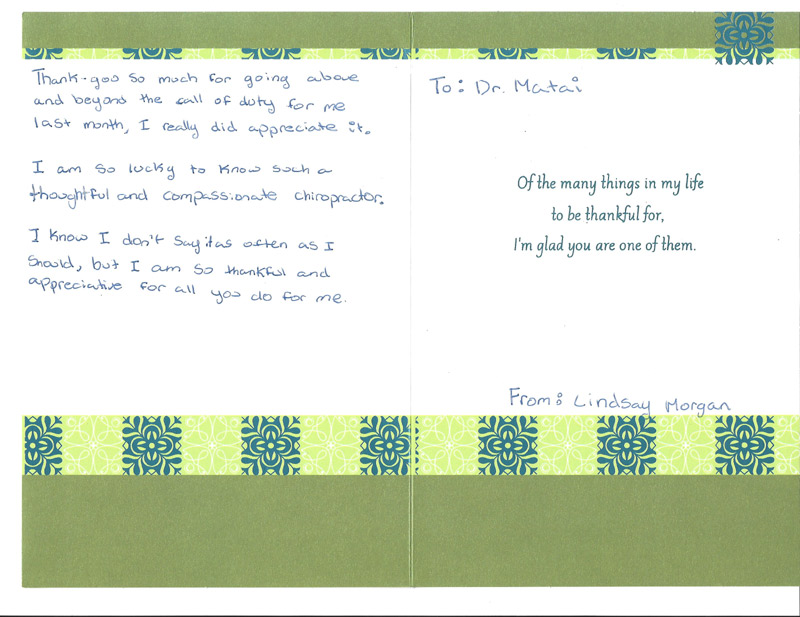 Thank-you so much for going above
and beyond the call of duty for me
last month, I really did appreciate it.
I am so lucky to know such a
thoughtful and compassionate chiropractor.
I know I don't say it as often as I
should, but I am so thankful and
appreciative for all you do for me.
To: Dr. Matai
Of the many things in my life
to be thankful for,
I'm glad you are one of them.
From: Lindsay Morgan